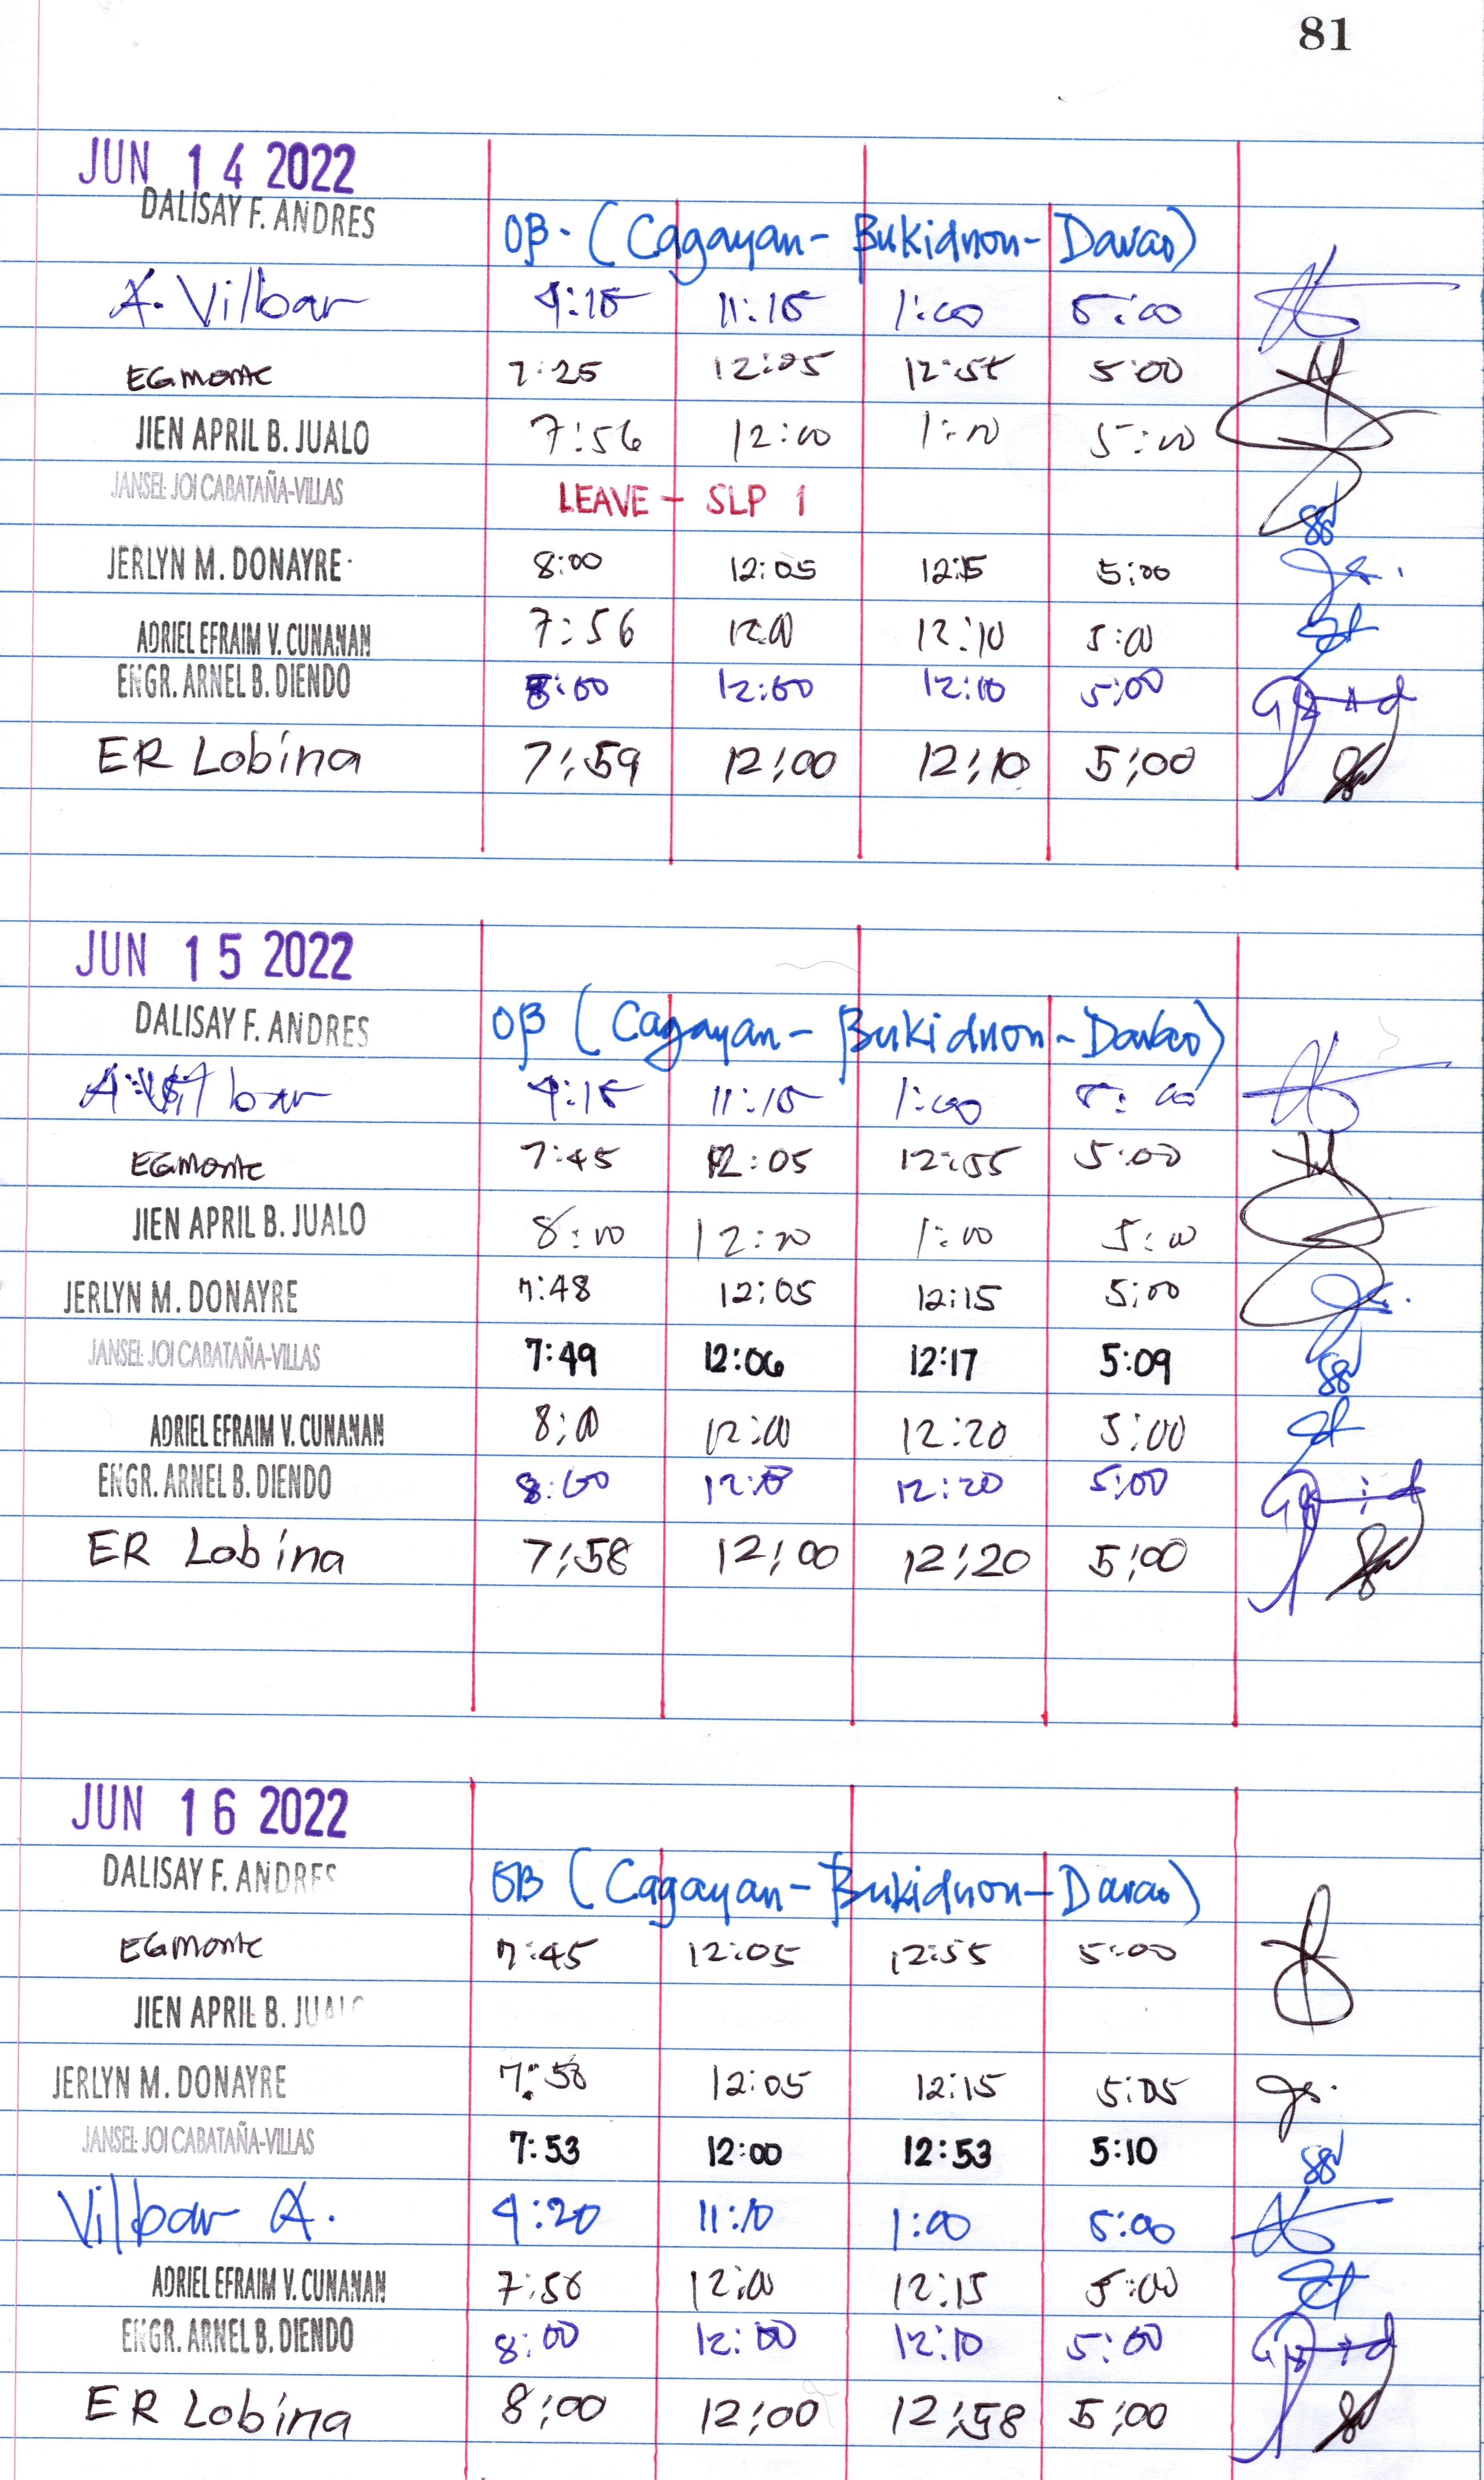 81
JUN 14 2022
DALISAY F. ANDRES OB - (Cagayan - Bukidnon - Davao)
A. Vilbar 4:15 11:15 1:00 5:00
EGmonte 7:25 12:05 12:55 5:00
JIEN APRIL B. JUALO 7:56 12:00 1:00 5:00
JANSEL JOI CABATAÑA-VILLAS LEAVE - SLP 1
JERLYN M. DONAYRE 8:00 12:05 12:15 5:00
ADRIEL EFRAIM V. CUNANAN 7:56 12:00 12:10 5:00
ENGR. ARNEL B. DIENDO 8:00 12:00 12:10 5:00
ER Lobina 7:59 12:00 12:10 5:00
JUN 15 2022
DALISAY F. ANDRES OB (Cagayan - Bukidnon - Davao)
A. Vilbar 4:15 11:15 1:00 5:00
EGmonte 7:45 12:05 12:55 5:00
JIEN APRIL B. JUALO 8:00 12:00 1:00 5:00
JERLYN M. DONAYRE 7:48 12:05 12:15 5:00
JANSEL JOI CABATAÑA-VILLAS 7:49 12:06 12:17 5:09
ADRIEL EFRAIM V. CUNANAN 8:00 12:00 12:20 5:00
ENGR. ARNEL B. DIENDO 8:00 12:20 5:00
ER Lobina 7:58 12:00 12:20 5:00
JUN 16 2022
DALISAY F. ANDRES OB (Cagayan - Bukidnon - Davao)
EGmonte 7:45 12:05 12:55 5:00
JIEN APRIL B. JUALO
JERLYN M. DONAYRE 7:58 12:05 12:15 5:05
JANSEL JOI CABATAÑA-VILLAS 7:53 12:00 12:53 5:10
Vilbar A. 4:20 11:10 1:00 5:00
ADRIEL EFRAIM V. CUNANAN 7:56 12:00 12:15 5:00
ENGR. ARNEL B. DIENDO 8:00 12:00 12:10 5:00
ER Lobina 8:00 12:00 12:58 5:00